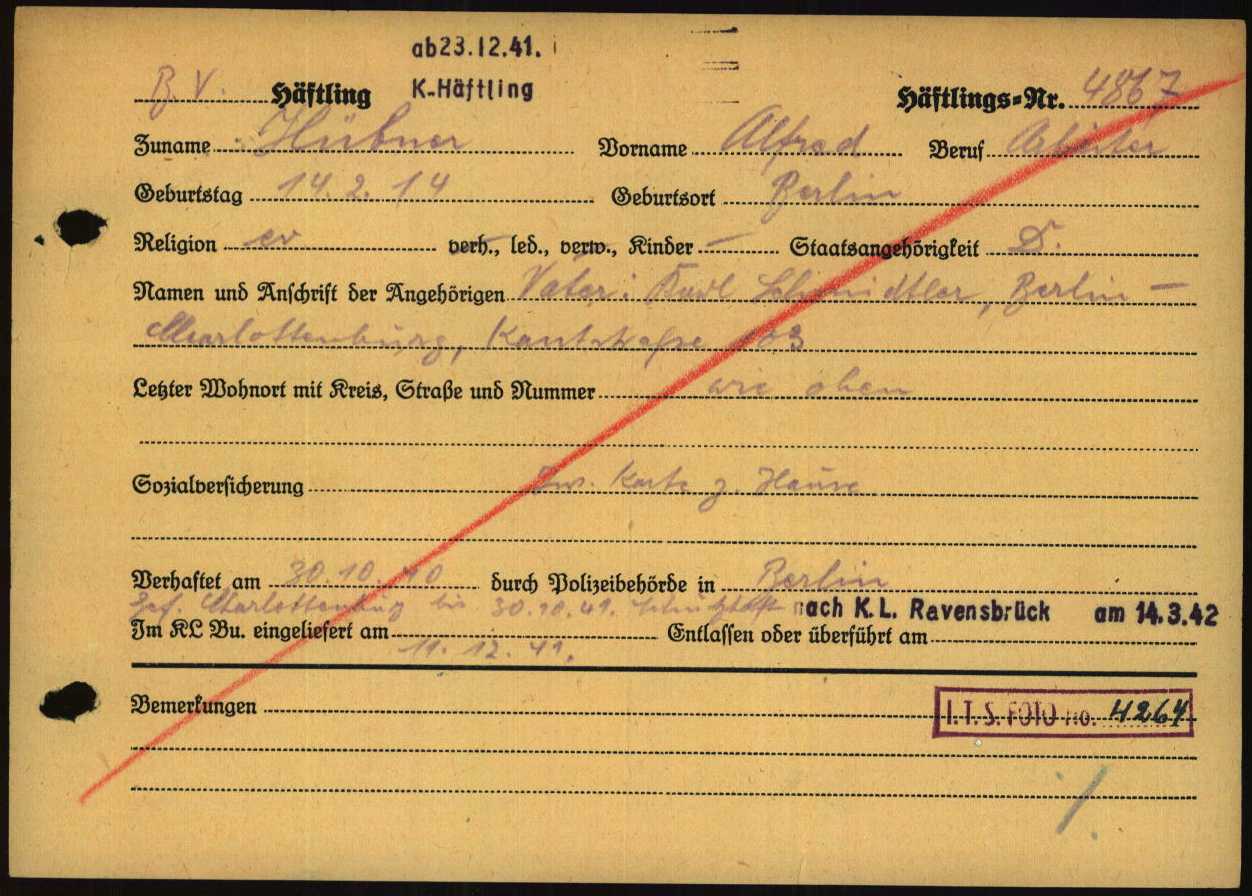 ab 23.12.41.
B.V. Häftling K-Häftling Häftlings=Nr. 4867
Zuname Hübner Vorname Alfred Beruf Arbeiter
Geburtstag 14.2.14 Geburtsort Berlin
Religion ev verh., led., verw., Kinder — Staatsangehörigkeit D.
Namen und Anschrift der Angehörigen Vater: Karl Berlin —
Charlottenburg, Kantstraße
Letzter Wohnort mit Kreis, Straße und Nummer wie oben
Sozialversicherung Inv. Karte z. Hause
Verhaftet am 30.10.40 durch Polizeibehörde in Berlin
Gef. Charlottenburg bis 30.10.41. Schutzhaft nach K.L. Ravensbrück am 14.3.42
Im KL Bu. eingeliefert am Entlassen oder überführt am
11.12.41.
Bemerkungen
I.T.S. FOTO No. 4264